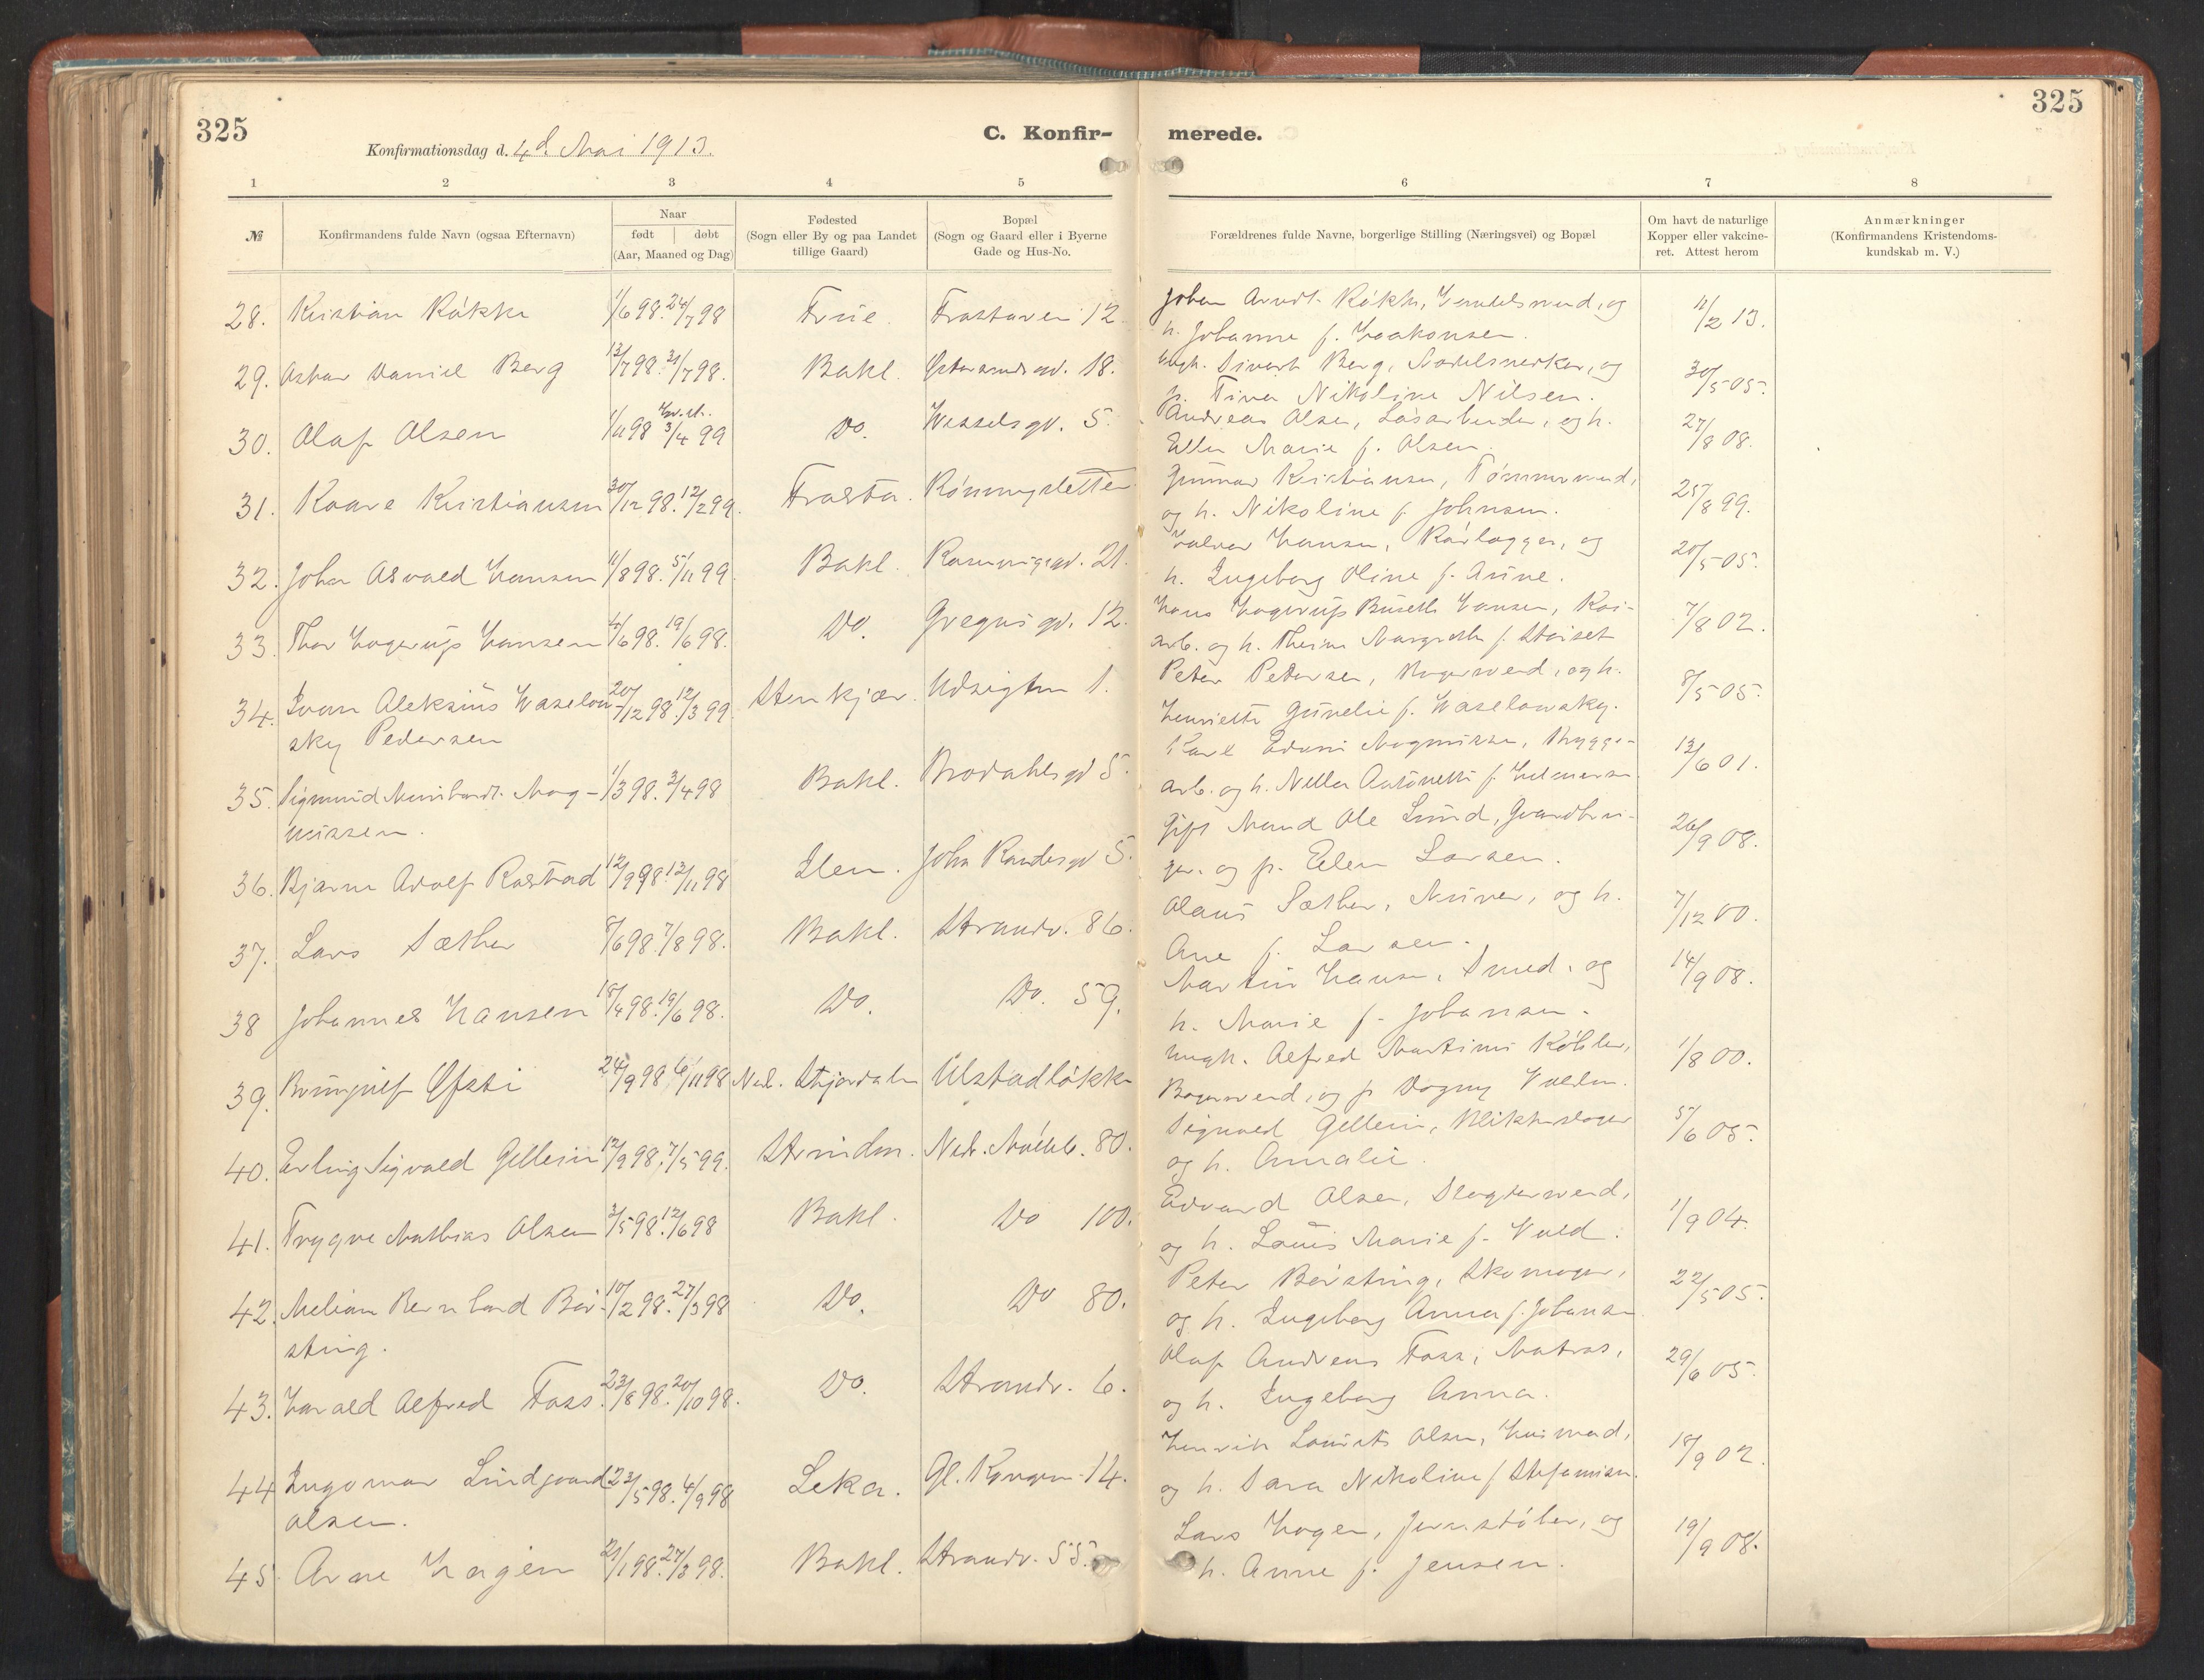 325
C. Konfir-
merede.
325
Konfirmationsdag d. 4d. Mai 1913.
1 2 3 4 5 6 7 8
№
Konfirmandens fulde Navn (ogsaa Efternavn)
Naar
født døbt
(Aar, Maaned og Dag)
Fødested
(Sogn eller By og paa Landet
tillige Gaard)
Bopæl
(Sogn og Gaard eller i Byerne
Gade og Hus-No.
Forældrenes fulde Navne, borgerlige Stilling (Næringsvei) og Bopæl
Om havt de naturlige
Kopper eller vakcine-
ret. Attest herom
Anmærkninger
(Konfirmandens Kristendoms-
kundskab m. V.)
28. Kristian Rókke 1/6 98. 24/7 98 Frue. Frostaven 12. Johan Arndt Rókke, og
h. Johanne f. Haakonsen. 11/2 13.
29. Daniel Berg 13/7 98. 31/7 98. Bakl. 18. ungk. Sivert Berg, og
p. Nikoline Nilsen. 30/5 05.
30. Olaf Olsen 1/11 98 3/4 99 Do. Wesselsgd. 5. Andreas Olsen, Lósarbeider, og h.
Ellen Marie f. Olsen. 27/8 08.
31. Kaare Kristiansen 30/12 98. 12/2 99. Frosta. Rónningsletten Gunnar Kristiansen, Tømmermand,
og h. Nikoline f. Johnsen. 25/8 99.
32. John Asvald Hansen 11/8 98. 5/11 99. Bakl. 21. Halvor Hansen, Rórlægger, og
h. Ingeborg Oline f. Aune. 20/5 05.
33. Thor Hagerup Hansen 4/6 98. 19/6 98. Do. Gregusgd. 12. Hans Hagerup Hansen, Kai-
arb. og h. f. 7/8 02.
34. Ivan Aleksius Waselow-
sky Pedersen 20/12 98. 12/3 99. Stenkjær. Udsigten 1. Peter Pedersen, og h.
Henriette f. Waselowsky. 8/5 05.
35. Sigmund Mag-
nussen. 1/3 98. 3/4 98 Bakl. 5. Karl Magnussen, Brygge-
arb. og h. f. 13/6 01.
36. Bjarne Adolf Rostad 12/9 98. 13/11 98 Ilen. 5. Gift Mand Ole Lund, Gaardbru-
ger. og p. Ellen Larsen. 26/9 08.
37. Lars Sæther 8/6 98. 7/8 98. Bakl. Strandv. 86. Olaus Sæther, Murer, og h.
Ane f. Larsen. 7/12 00.
38 Johannes Hansen 18/4 98. 19/6 98. Do. Do. 59. Martin Hansen, Smed, og
h. Marie f. Johansen. 14/9 08.
39. Brynjulf Øfsti 24/9 98 6/11 98 Ned. Stjørdalen Ulstadlókken ungk. Alfred Martinus Köhler,
Bagersvend, og p. Dagny 1/8 00.
40. Erling Sigvald Gellein 12/9 98. 7/5 99. Strinden. Ned. Mólleb. 80. Sigvald Gellein, Blikkenslager
og h. Amalie. 5/6 05.
41. Trygve Mathias Olsen 3/5 98. 12/6 98 Bakl. Do 100. Edvard Olsen, Slagtersvend,
og h. Louis Marie f. Vold. 1/9 04.
42. Bernhard Bór-
sting. 10/2 98. 27/3 98 Do. Do 80. Peter Bórsting, Skomager,
og h. Ingeborg Anna f. Johansen 22/5 05.
43. Harald Alfred Foss. 23/8 98. 20/10 98. Do. Strandv. 6. Olaf Andreas Foss, Matros,
og h. Ingeborg Anna. 29/6 05.
44 Ingomar Lindgaard
Olsen. 23/5 98. 4/9 98 Leka. Gl. Kongev. 14. Henrik Laurits Olsen, Husmand,
og h. Sara Nikoline f. Stefansen. 18/9 02.
45. Arne Hagen 21/1 98. 27/3 98. Bakl. Strandv. 55. Lars Hagen, Jernstóber, og
h. Anne f. Jensen. 19/9 08.